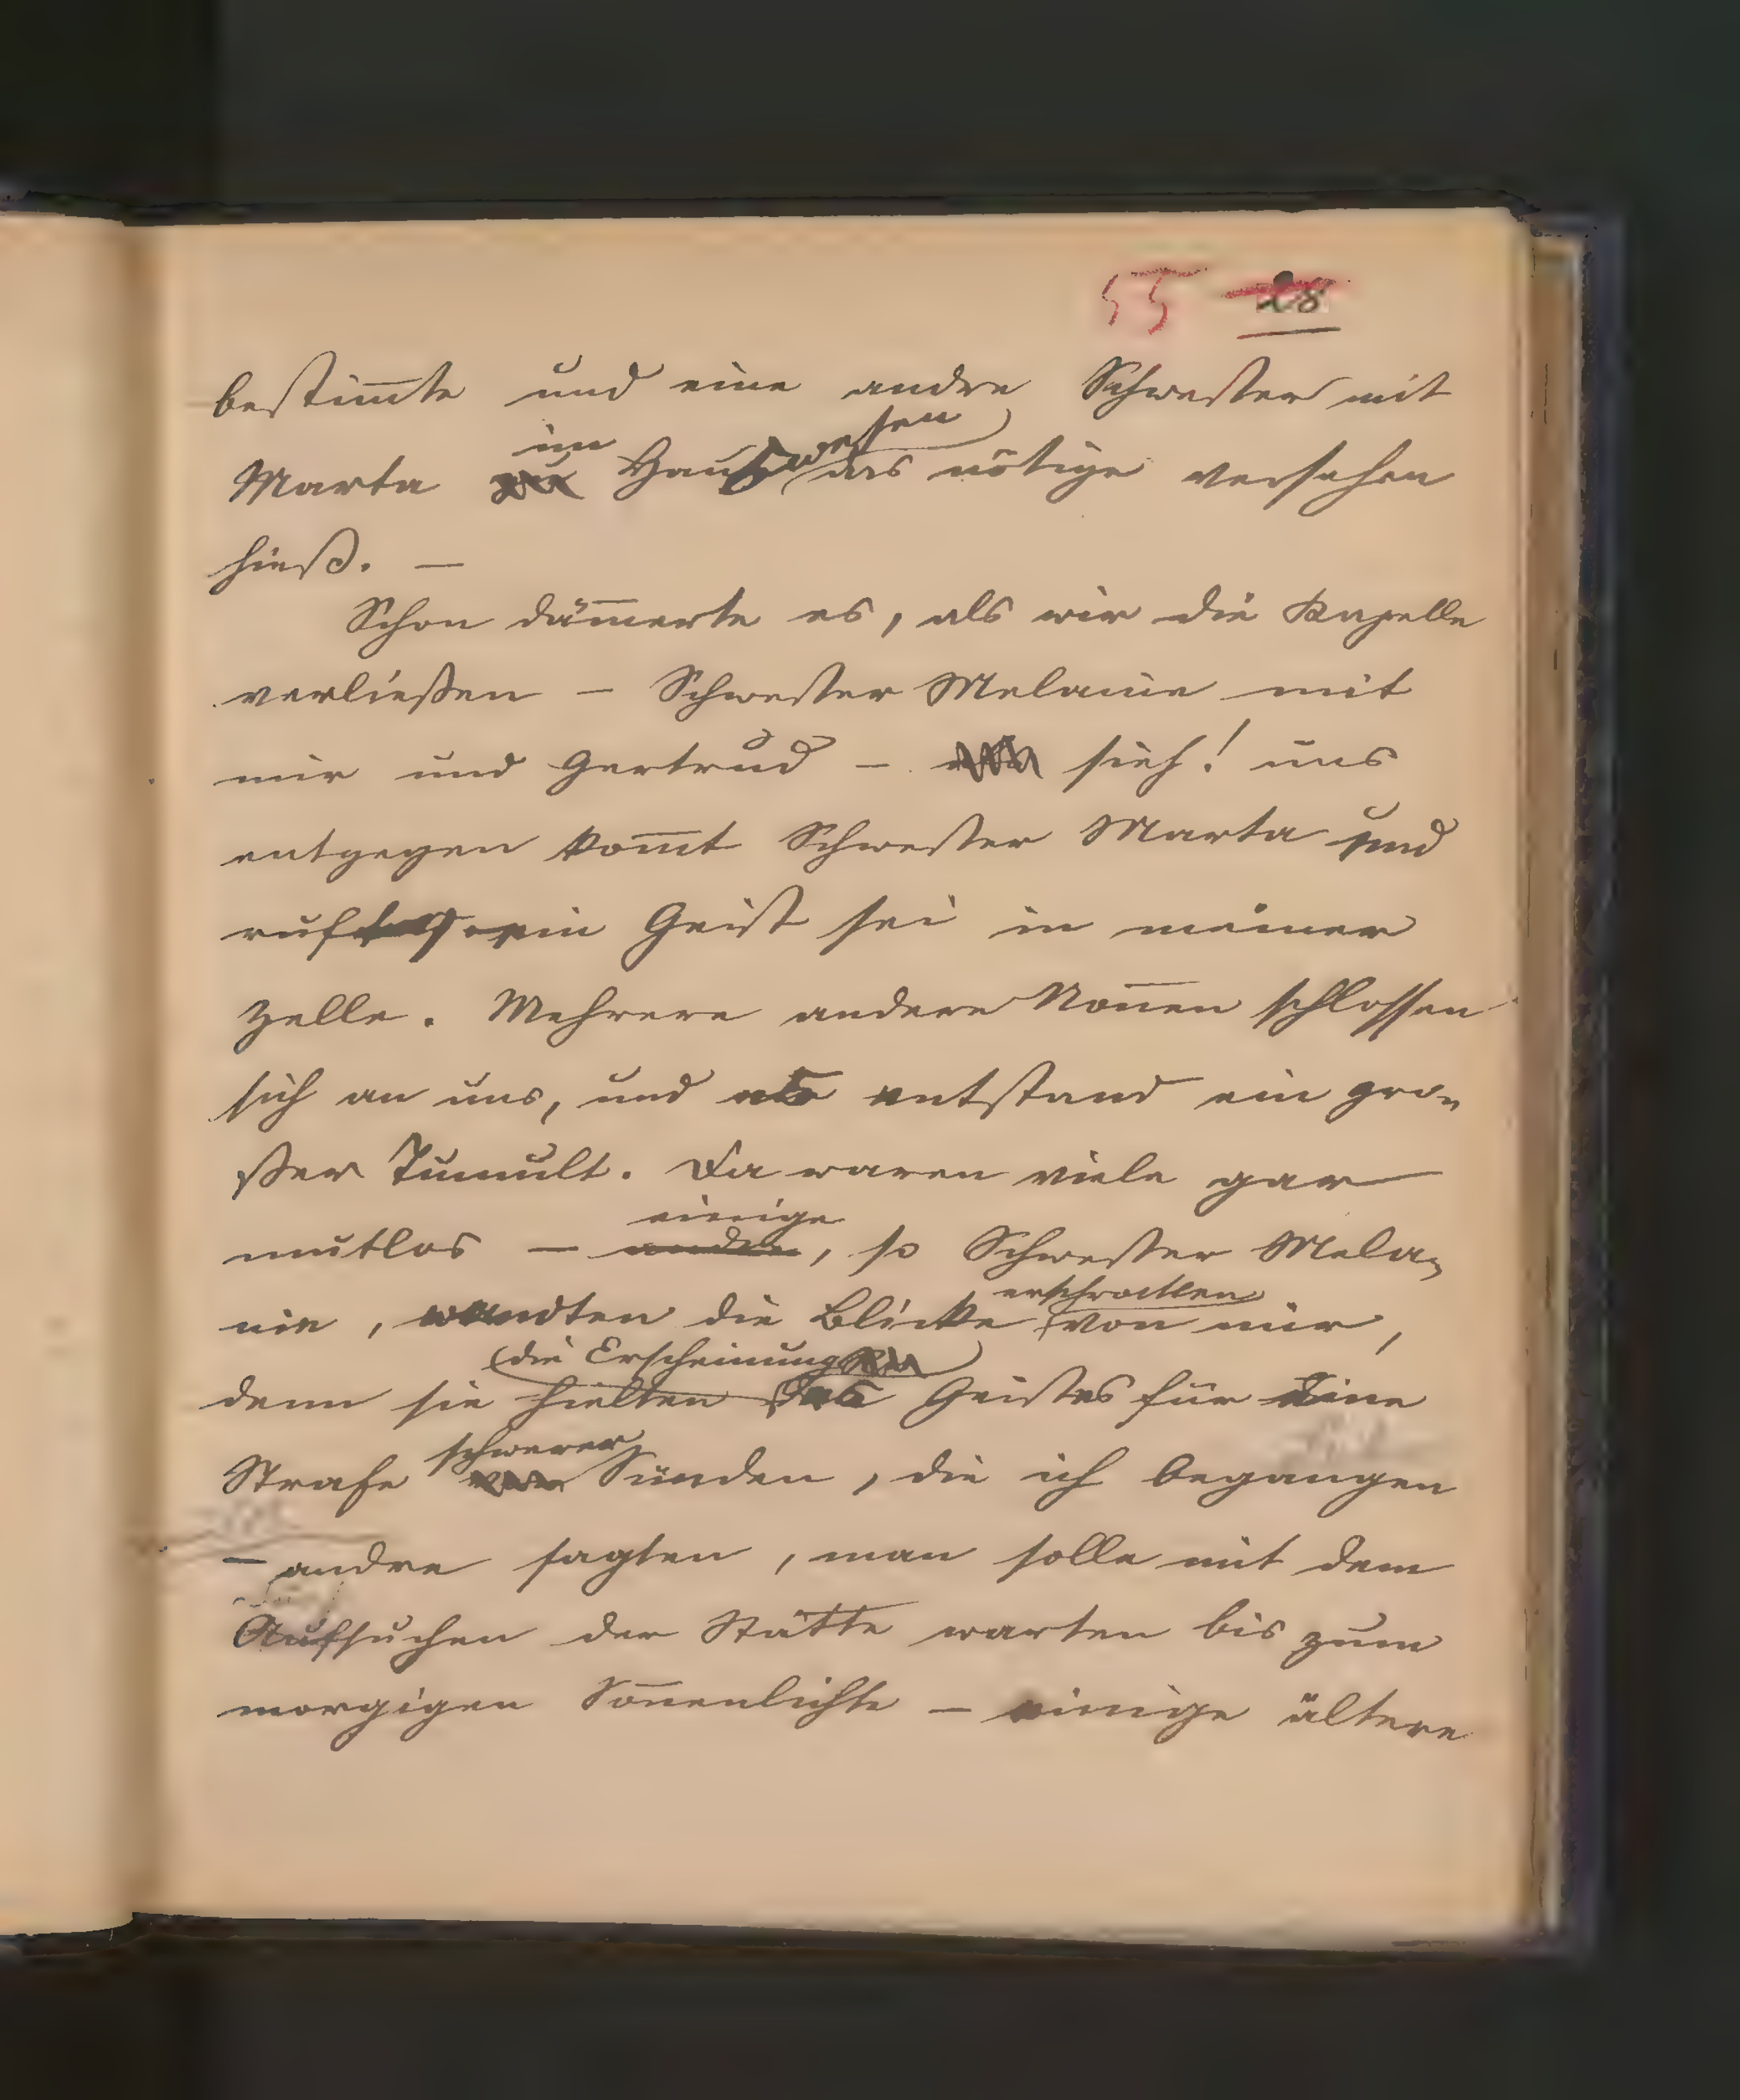 55 28
bestim̅te und eine andre Schwester mit
im wesen
Marta Haus das nötige versehen
hieß. —
Schon däm̅erte es, als wir die Kapelle
verließen – Schwester Melanie mit
mir und Gertrud – sieh! uns
entgegen kom̅t Schwester Marta und
ruft ein Geist sei in meiner
Zelle. Mehrere andere Non̅en schlossen
sich an uns, und es entstand ein gro-
ßer Tumult. Da waren viele gar
einige
mutlos – andere, so Schwester Mela-
erschrocken
nie, wandten die Blicke von mir,
die Erscheinung
denn sie hielten des Geistes für eine
schwerer
Strafe Sünden, die ich begangen
– andre sagten, man solle mit dem
Aufsuchen der Stätte warten bis zum
morgigen Son̅enlichte – einige ältere